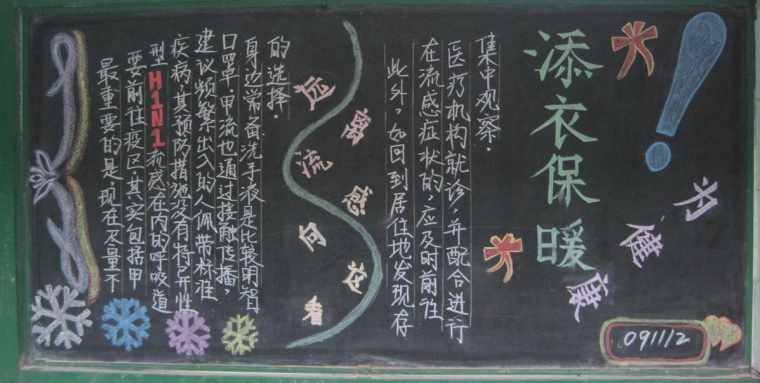 最重要的是,现在尽量不
要前往疫区.其实包括甲
型H1N1流感在内的呼吸道
疾病,其预防措施没有特异性
建议频繁出入的人佩带标准
口罩.甲流也通过接触传播,
身边常备洗手液是比较明智
的选择.
远离流感向花香
此外,如回到居住地发现存
在流感症状的,应及时前往
医疗机构就诊,并配合进行
集中观察.
添衣保暖
!
为健康
091112